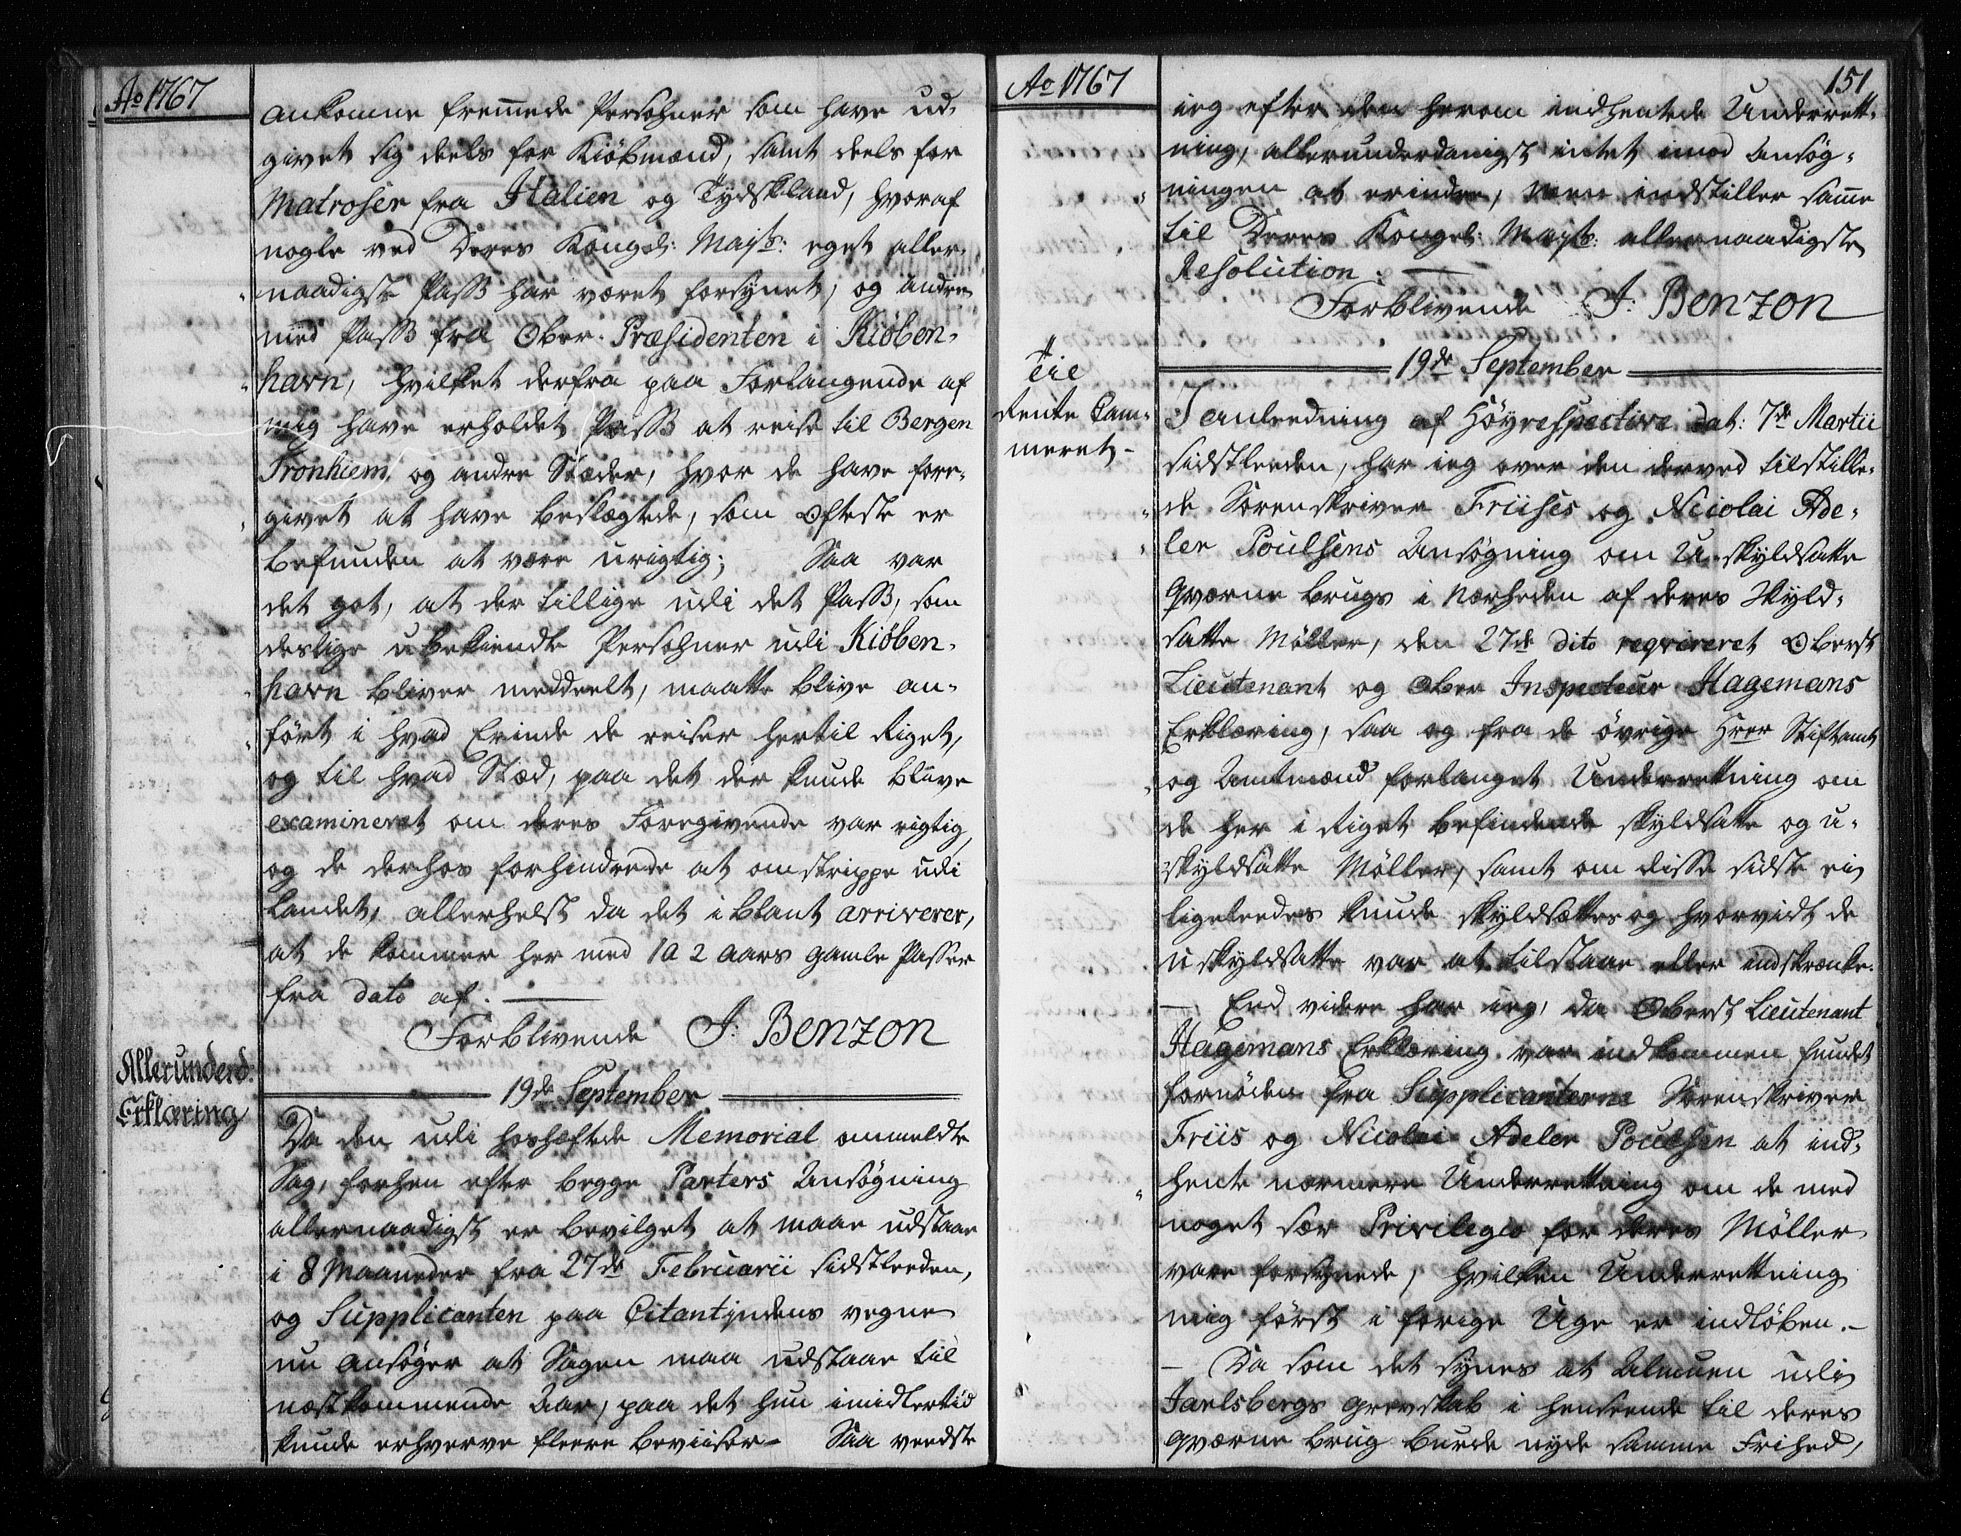 Ao 1767
ankomne fremmede Persohner som have ud-
givet sig deels for Kiöbmænd, samt deels for
Matroser fra Italien og Tydskland, hvoraf
nogle ved Deres Kongel: Mayts: eget aller-
naadigste Pass har været forsynet, og andre
med Pass fra Ober-Præsidenten i Kiöben-
havn, hvilket derfra paa Forlangende af
mig have erholdet Pass at reise til Bergen
Tronhiem, og andre Stæder, hvor de have fore-
givet at have beslægtede, som ofteste er
befunden at være urigtig; Saa var
det got, at der tillige udi det Pass, som
deslige ubekiendte Persohner udi Kiöben-
havn bliver meddeelt, maatte blive an-
fört i hvad Erinde de reiser hertil Riget,
og til hvad Stæd, paa det der kunde blive
examineret om deres Foregivende var rigtig,
og de derhos forhindrede at omstrippe udi
Landet, allerhelst da det iblant arriverer,
at de kommer her med 1 a 2 aars gamle Passer
fra dato af.
Forblivende J: Benzon
Allerunderd:
Erklæring
19de September
Da den udi hoshæftede Memorial ommeldte
Sag, forhen efter begge Parters Ansögning
allernaadigst er bevilget at maae udstaae
i 8 Maaneder fra 27de Februarii sidstleeden,
og Supplicanten paa Citantindens vegne
nu ansöger at Sagen maa udstaae til
næstkommende Aar, paa det hun imidlertid
kunde erhverve fleere beviiser - Saa veedste
Ao 1767
151
ieg efter den herom indhentede Underrett-
ning, allerunderdanigst intet imod Ansög-
ningen at erindre, men indstiller samme
til Deres Kongel: Mayts: allernaadigste
Resolution.
Forblivende J: Benzon
19de September
Til
Rente Cam-
meret-
I anleedning af Höyrespective dat: 7de Martii
sidstleeden, har ieg over den derved tilstille-
de Sorenskriver Friises og Nicolai Ade-
ler Poulsens Ansögning om U-skyldsatte
Qværne brugs i Nærheden af deres Skyld-
satte Möller, den 27de dito reqvireret Oberst
Lieutenant og Ober Inspecteur Hagemans
Erklæring, saa og fra de övrige Hrer Stiftamt
og Amtmænd forlanget Underrettning om
de her i Riget befindende skyldsatte og u-
skyldsatte Möller, samt om disse sidste ei
ligeleedes kunde skyldsættes og hvorvidt de
uskyldsatte var at tilstaae eller indskrænke.
End videre har ieg, da Oberst Lieutenant
Hagemans Erklæring var indkommen fundet
fornöden fra Supplicanterne Sorenskriver
Friis og Nicolai Adeler Poulsen at ind-
hente nærmere Underrettning om de med
noget sær Privilegio for deres Möller
vare forsynede, hvilken Underrettning
mig först i forige Uge er indlöben.-
- Da som det synes at Almuen udi
Jarlsbergs Grevskab i henseende til deres
qværne brug burde nyde samme Frihed,